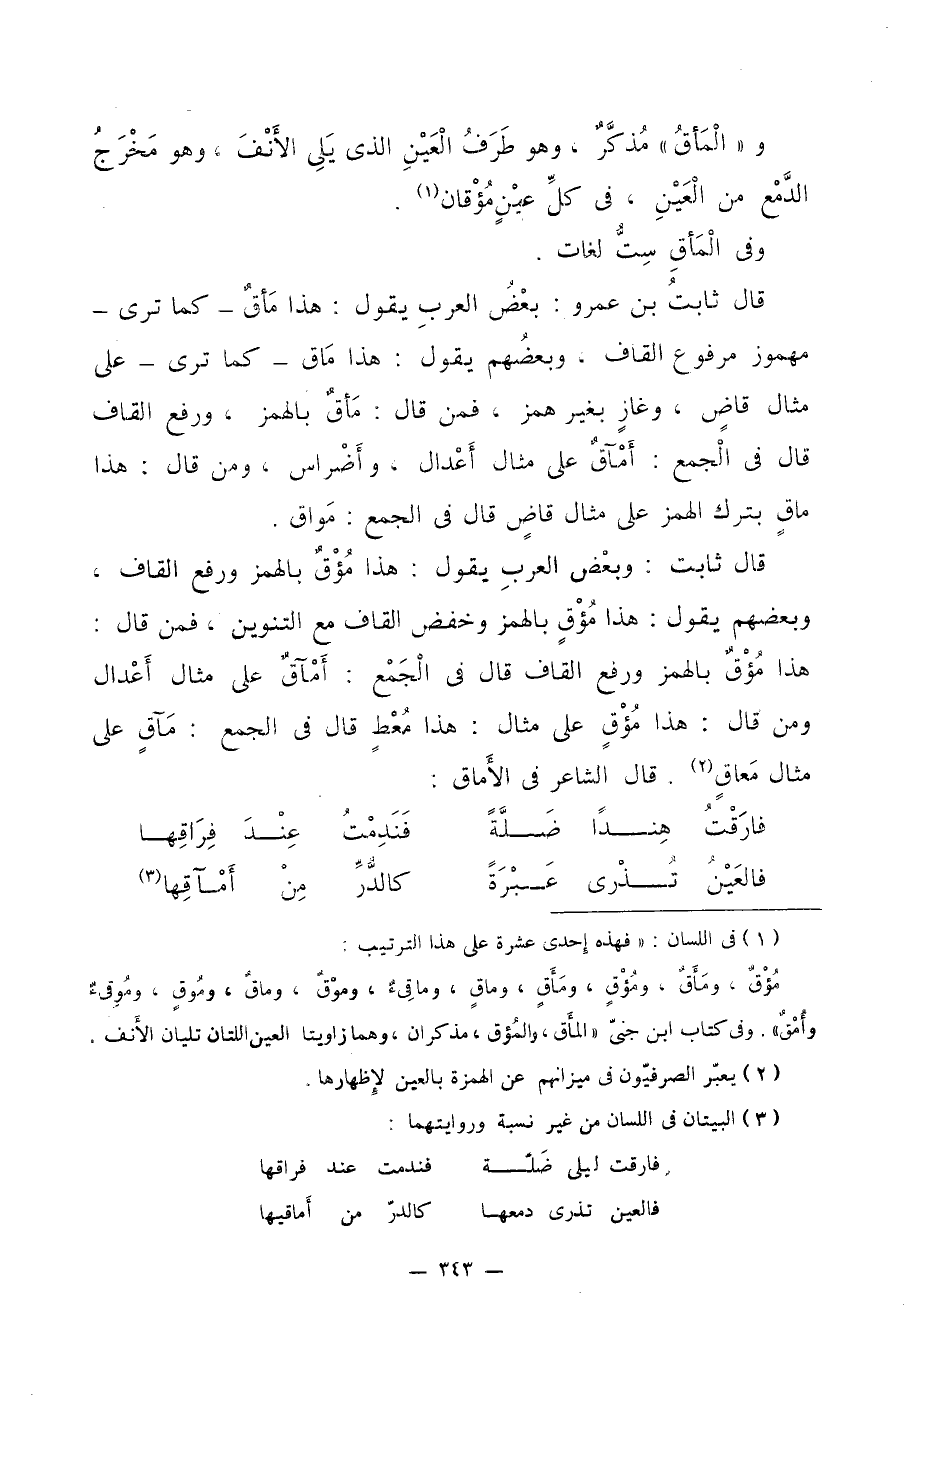 و « الْمَأقُ » مُذَكَّرٌ ، وهو طَرَفُ الْعَيْنِ الذى يَلِى الأَنْفَ ، وهو مَخْرَجُ
الدَّمْعِ من الْعَيْنِ ، فى كلِّ عيْنٍ مُؤْقان(١) .
وفى الْمَأقِ سِتُّ لغات .
قال ثابتُ بن عمرو : بعْضُ العربِ يقول : هذا مَأقٌ – كما ترى –
مهموز مرفوع القاف ، وبعضُهم يقول : هذا مَاقٍ – كما ترى – على
مثال قاضٍ ، وغازٍ بغير همز ، فمن قال : مَأقٌ بالهمز ، ورفع القاف
قال فى الْجمع : أَمْآقٌ على مثال أَعْدال ، وأَضْراس ، ومن قال : هذا
ماقٍ بترك الهمز على مثال قاضٍ قال فى الجمع : مَواقٍ .
قال ثابت : وبعْض العربِ يقول : هذا مُؤْقٌ بالهمز ورفع القاف ،
وبعضهم يقول : هذا مُؤْقٍ بالهمز وخفض القاف مع التنوين ، فمن قال :
هذا مُؤْقٌ بالهمز ورفع القاف قال فى الْجَمْع : أَمْآقٌ على مثال أَعْدال
ومن قال : هذا مُؤْقٍ على مثال : هذا مُعْطٍ قال فى الجمع : مَآقٍ على
مثال مَعاقٍ(٢) . قال الشاعر فى الأَماق :
فارَقْتُ هِنــدًا ضَــلَّةً فَنَدِمْتُ عِنْــدَ فِرَاقِهـا
فالعَيْنُ تُــذْرى عَــبْرَةً كالدُّرِّ مِنْ أَمْـآقِها(٣)
(١) فى اللسان : « فهذه إحدى عشرة على هذا الترتيب :
مُؤْقٌ ، ومَأقٌ ، ومُؤْقٍ ، ومَأْقٍ ، وماقٍ ، وماقِىٌ ، وموْقٌ ، وماقٌ ، ومُوقٍ ، ومُوقِىٌ
وأُمْقٌ» . وفى كتاب ابن جنىّ «المأق ، والمُؤق ، مذكران ، وهما زاويتا العين اللتان تليان الأنف .
(٢) يعبّر الصرفيّون فى ميزانهم عن الهمزة بالعين لإِظهارها .
(٣) البيتان فى اللسان من غير نسبة وروايتهما :
فارقت ليلى ضَلّــة فندمت عند فراقها
فالعين تذرى دمعهـا كالدرّ من أَماقيها
– ٣٤٣ –